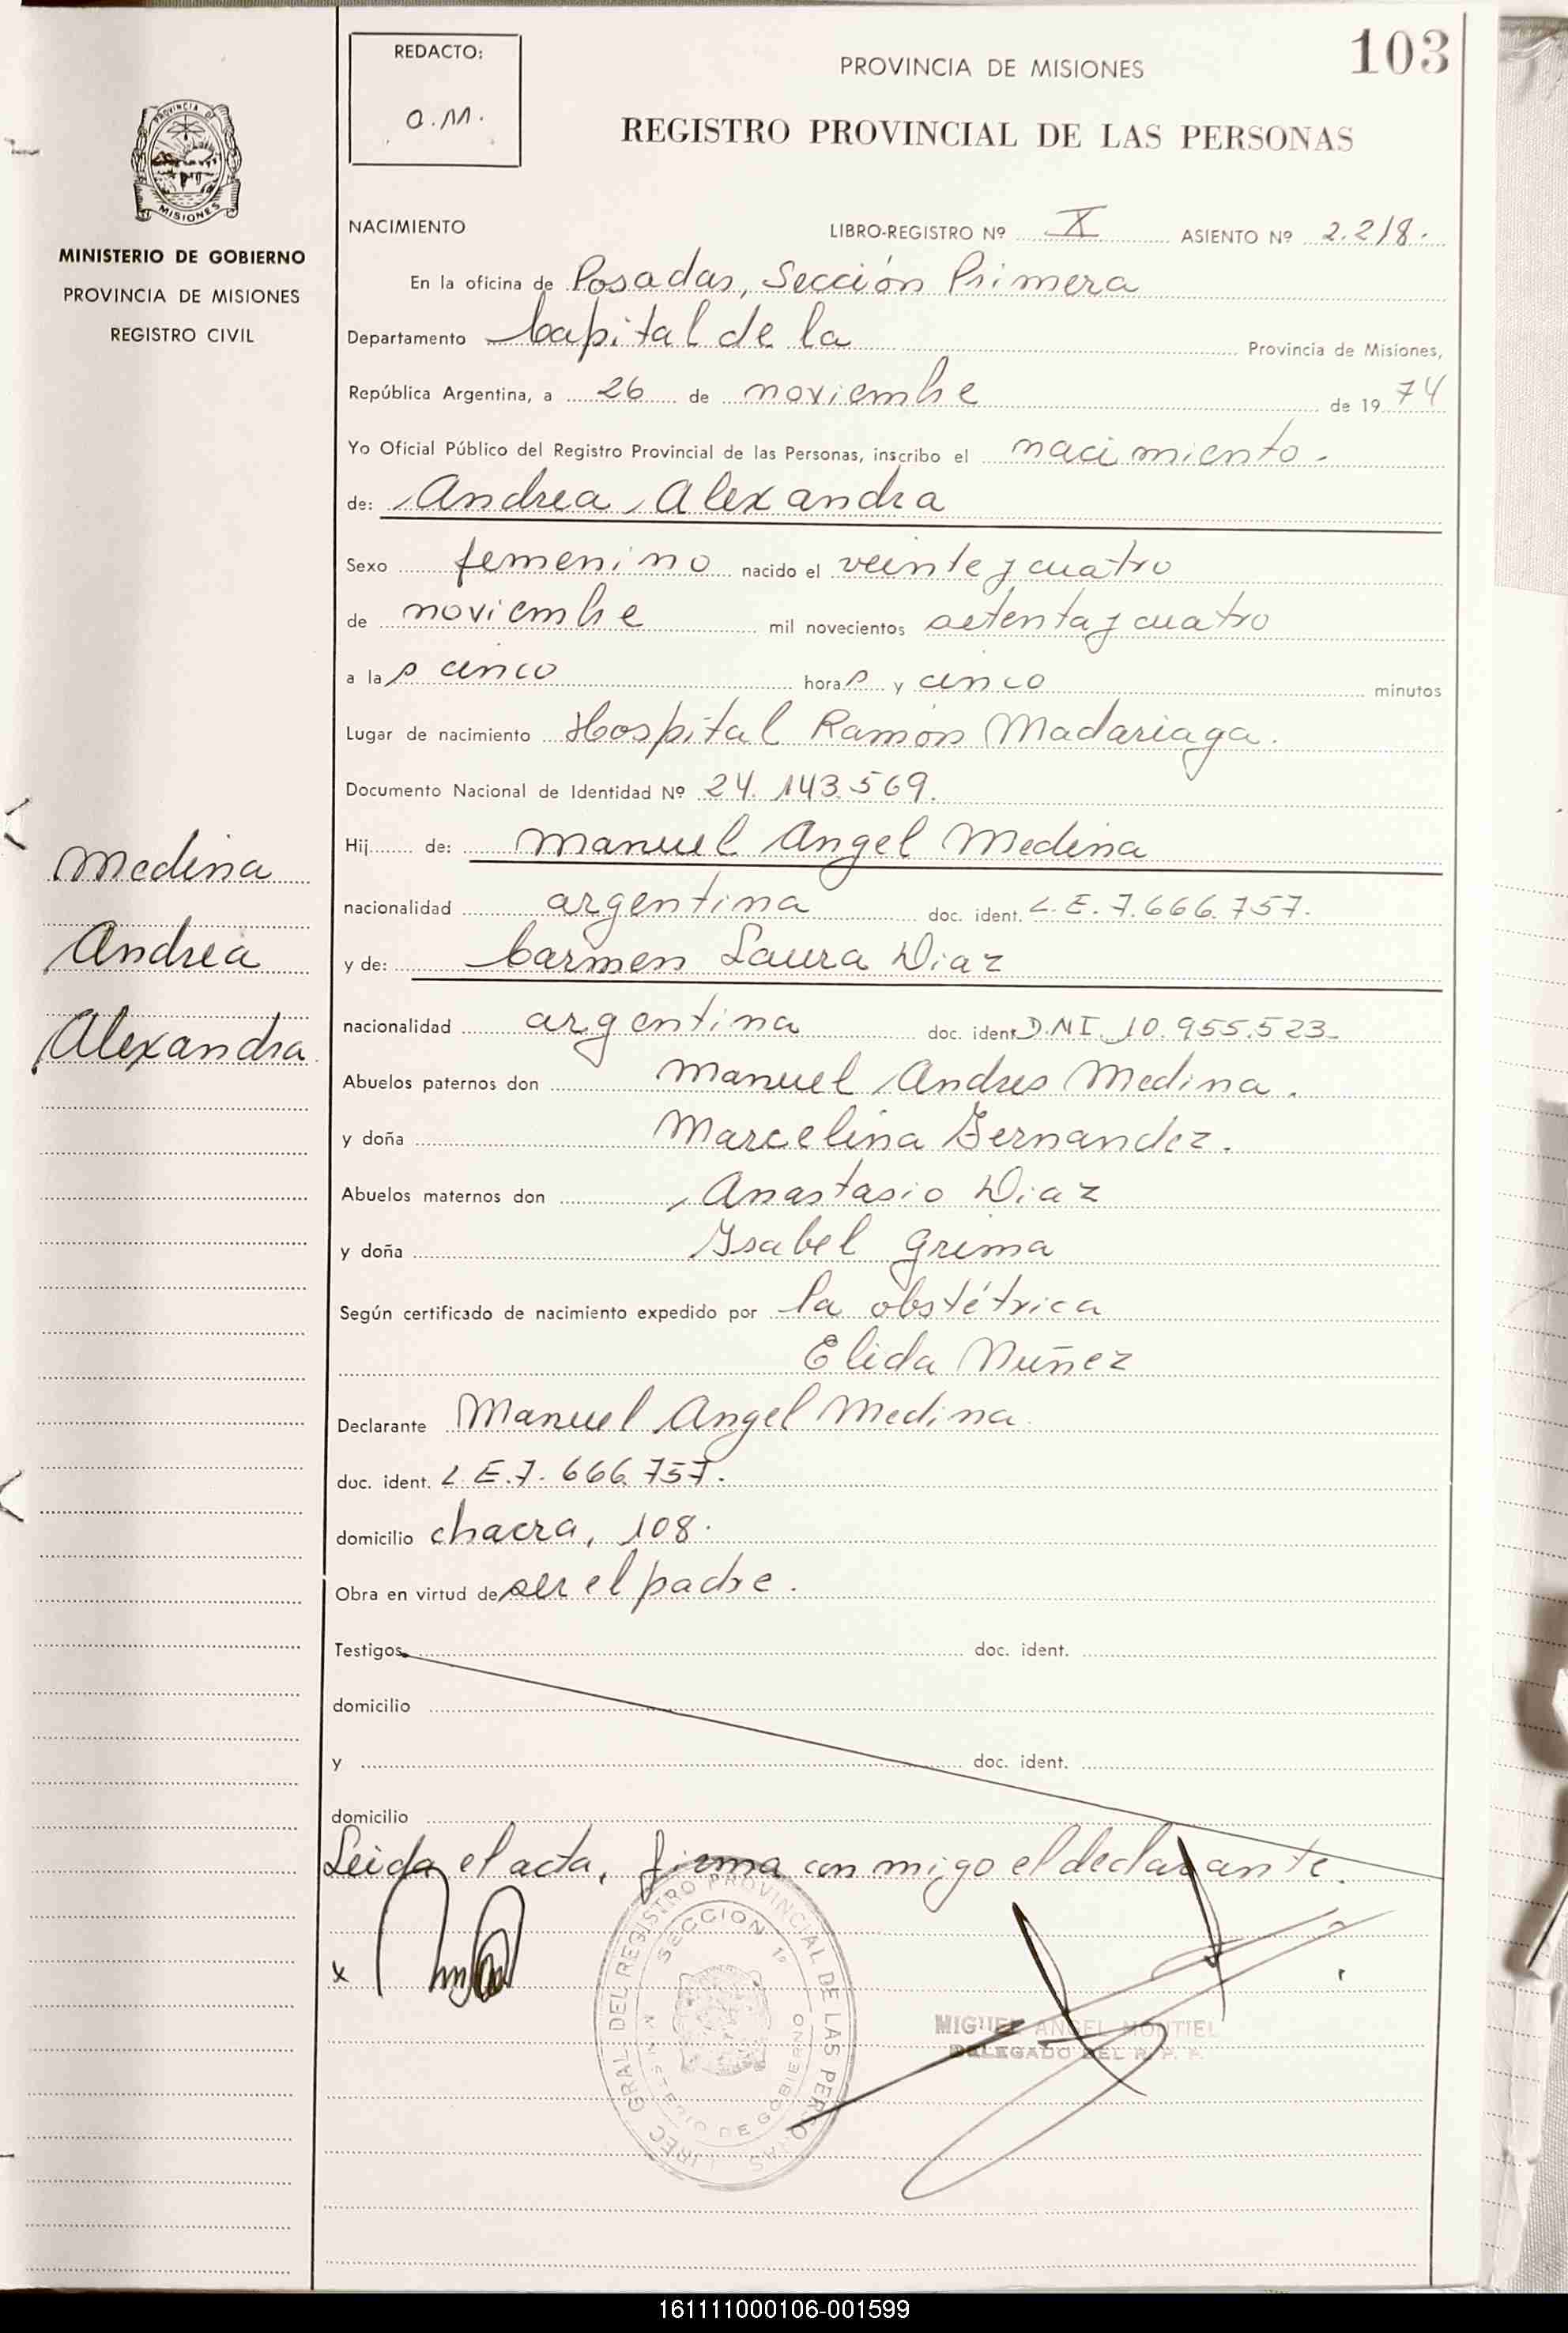 103
REDACTO:
O.M.
PROVINCIA DE MISIONES
REGISTRO PROVINCIAL DE LAS PERSONAS
PROVINCIA DE
MISIONES
MINISTERIO DE GOBIERNO
PROVINCIA DE MISIONES
REGISTRO CIVIL
NACIMIENTO LIBRO-REGISTRO Nº X ASIENTO Nº 2.218.
En la oficina de Posadas, Sección Primera
Departamento Capital de la Provincia de Misiones,
República Argentina, a 26 de noviembre de 1974
Yo Oficial Público del Registro Provincial de las Personas, inscribo el nacimiento.
de: Andrea Alexandra
Sexo femenino nacido el veinte y cuatro
de noviembre mil novecientos setenta y cuatro
a las cinco horas y cinco minutos
Lugar de nacimiento Hospital Ramón Madariaga.
Documento Nacional de Identidad Nº 24.143.569.
Hij de: Manuel Angel Medina
nacionalidad argentina doc. ident. L.E. 7.666.757.
y de: Carmen Laura Diaz
nacionalidad argentina doc. ident D.N.I. 10.955.523-
Abuelos paternos don Manuel Andres Medina.
y doña Marcelina Fernandez.
Abuelos maternos don Anastasio Diaz
y doña Ysabel Grima
Según certificado de nacimiento expedido por la obstétrica
Elida Nuñez
Declarante Manuel Angel Medina.
doc. ident. L.E. 7.666.757.
domicilio chacra, 108.
Obra en virtud de ser el padre.
Testigos doc. ident.
domicilio
y doc. ident.
domicilio
Leida el acta, firma conmigo el declarante.
Medina
Andrea
Alexandra
x
DIREC. GRAL. DEL REGISTRO PROVINCIAL DE LAS PERSONAS
SECCION 1ª
MINISTERIO DE GOBIERNO
MIGUEL ANGEL MONTIEL
DELEGADO DEL R. P. P.
161111000106-001599